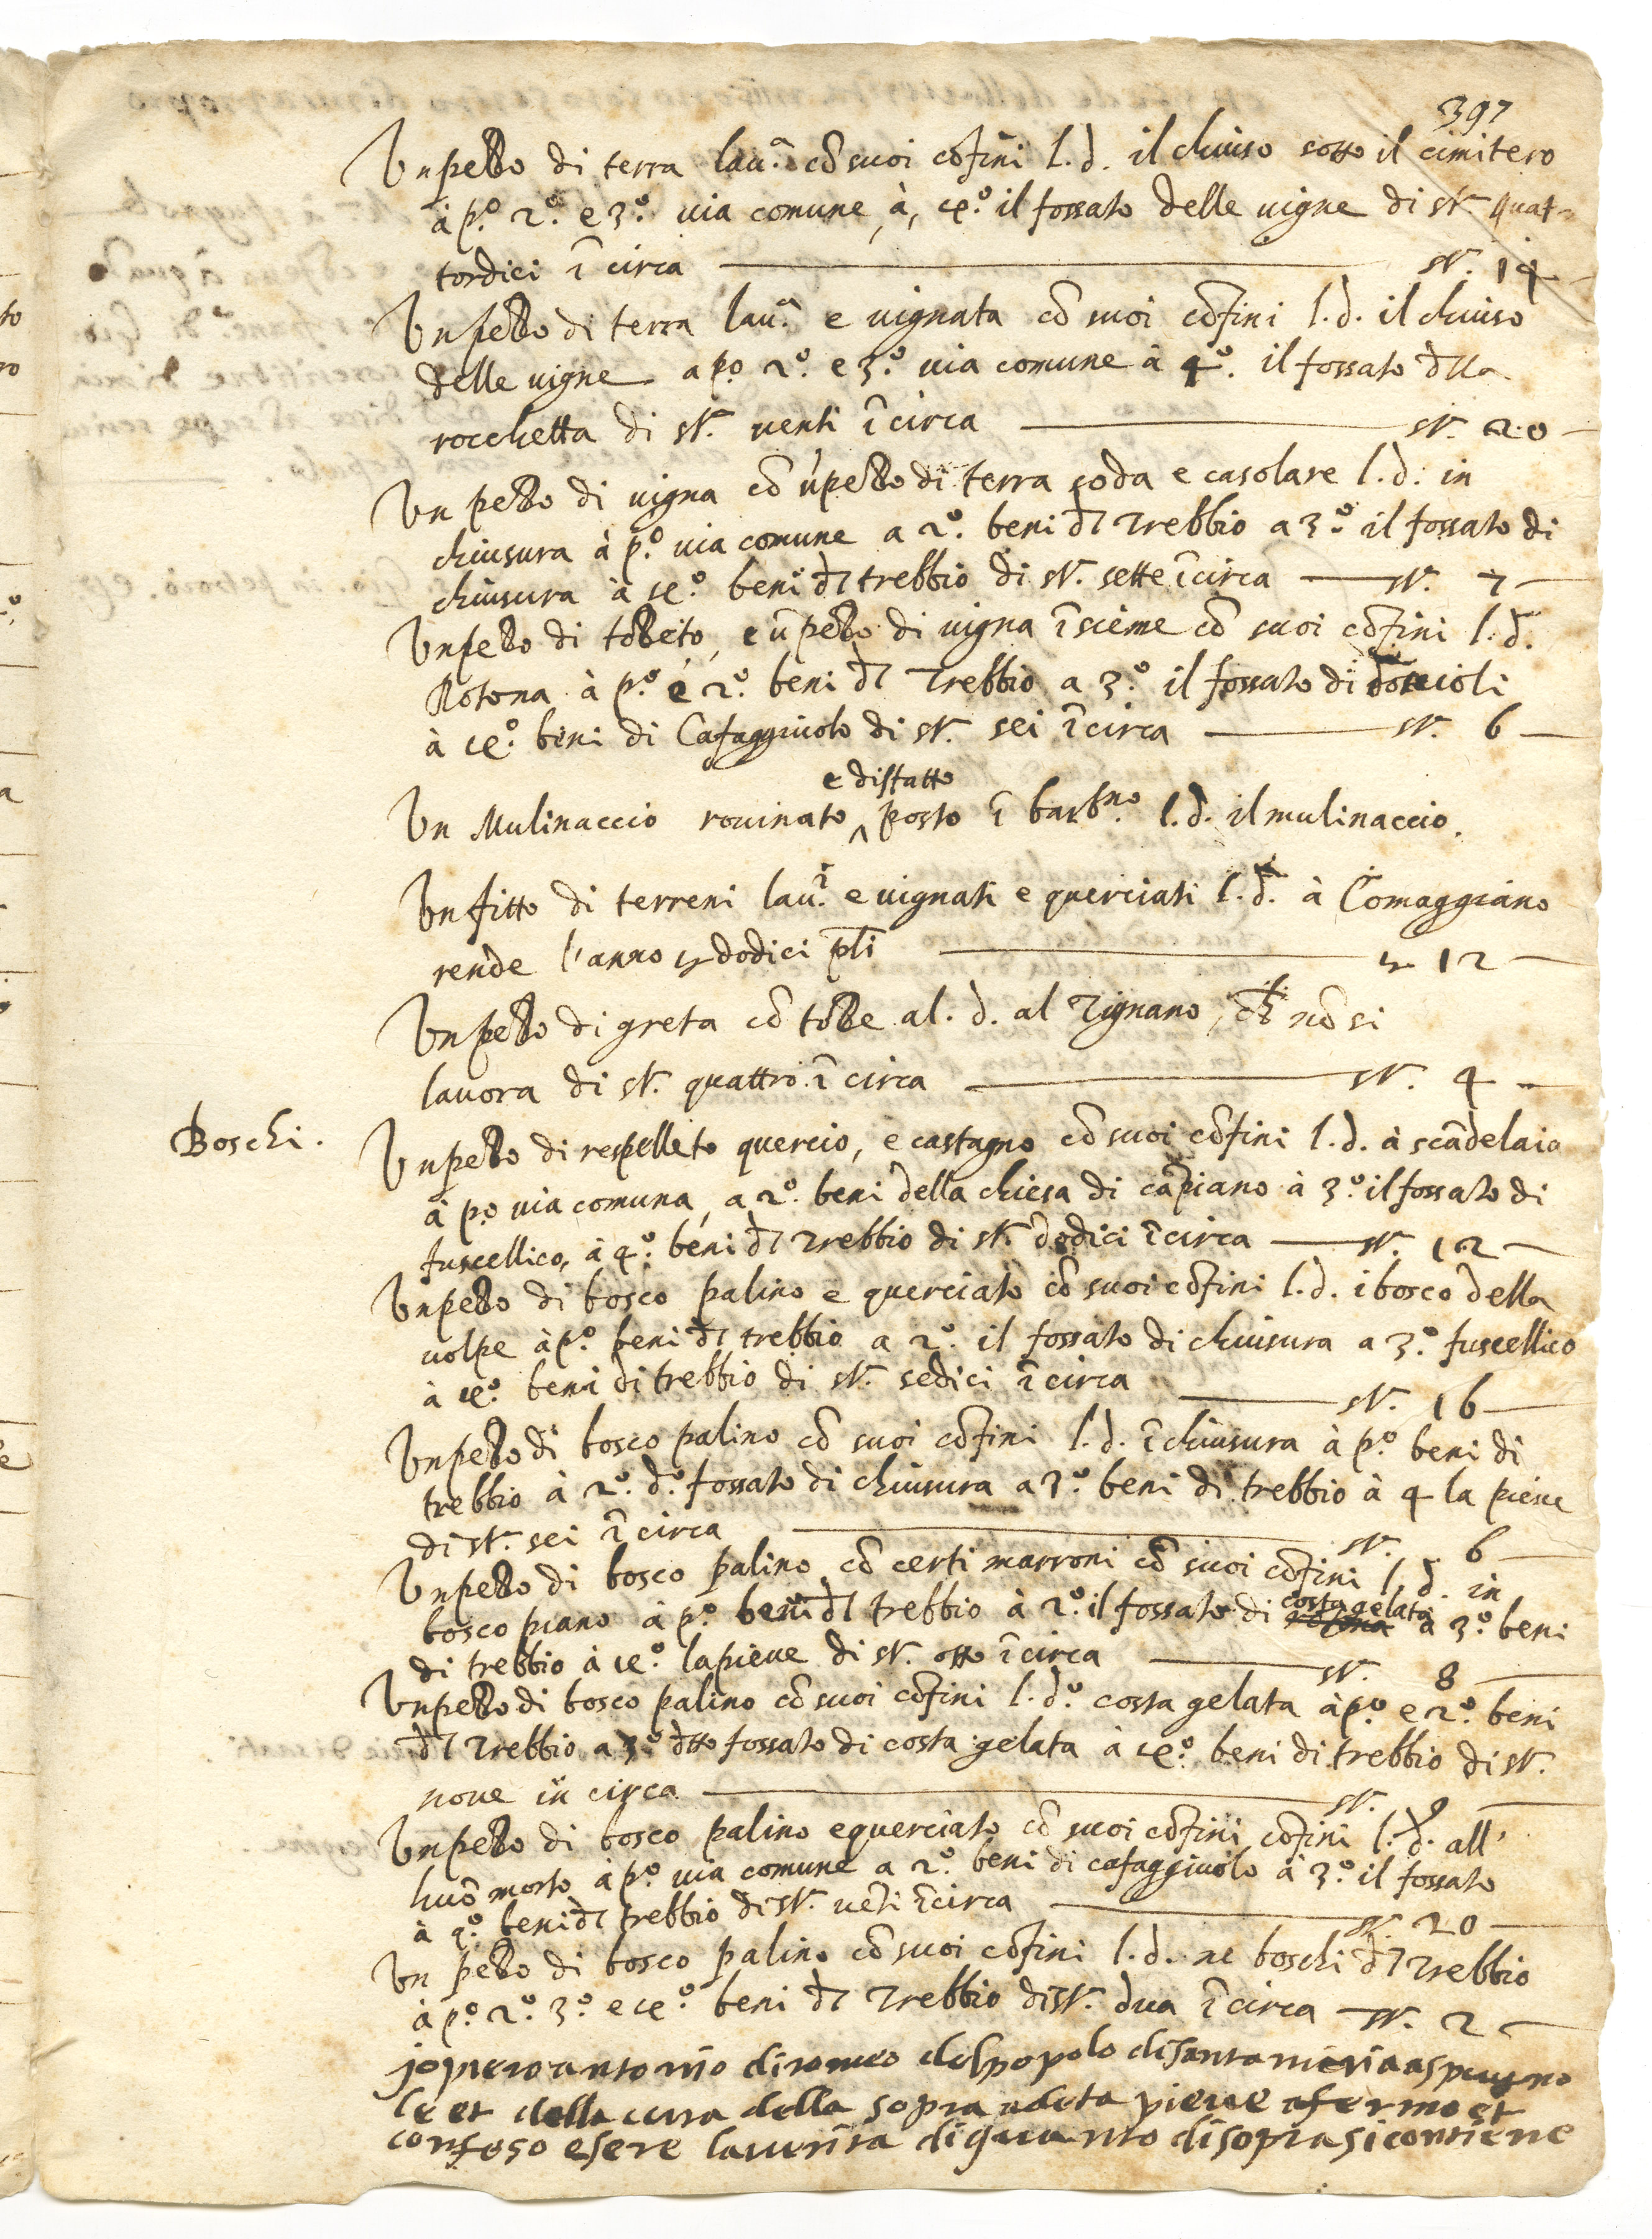 397
Un pezzo di terra lau.ª cō suoi cōfini l.d. il chiuso sotto il cimitero
à p.º 2.º e 3.º uia comune, à 4.º il fossato delle uigne di st. quat-
tordici ī circa st. 14
Un pezzo di terra lau.ª e uignata cō suoi cōfini l.d. il chiuso
delle uigne a p.º 2.º e 3.º uia comune à 4.º il fossato dlla
rocchetta di st. uenti ī circa st. 20
Un pezzo di uigna cō ū pezzo di terra soda e casolare l.d. in
chiusura à p.º uia comune a 2.º beni dl Trebbio a 3.º il fossato di
chiusura à 4.º beni dl trebbio di st. sette ī circa st. 7
Un pezzo di tōzeto, e ū pezzo di uigna īsieme cō suoi cōfini l.d.
Rotona à p.º e 2.º beni dl Trebbio a 3.º il fossato di
à 4.º beni di Cafaggiuolo di st. sei ī circa st. 6
e disfatto
Un Mulinaccio rouinato ^ posto ī barb.no l.d. il mulinaccio.
Un fitto di terreni lau.i e uignati e querciati l.d. à Comaggiano
rende l'anno dodici pli 12
Un pezzo di greta cō tōze al.d. al Tignano, ch nō si
lauora di st. quattro ī circa st. 4
Boschi.
Un pezzo di respelleto quercio, e castagno cō suoi cōfini l.d. à scādelaio
à p.º uia comuna, a 2.º beni della chiesa di cāpiano à 3.º il fossato di
fuscellico, à 4.º beni dl Trebbio di st. dodici ī circa st. 12
Un pezzo di bosco palino e querciato cō suoi cōfini l.d. i bosco della
uolpe à p.º beni dl trebbio a 2.º il fossato di chiusura a 3.º fuscellico
à 4.º beni di trebbio di st. sedici ī circa st. 16
Un pezzo di bosco palino cō suoi cōfini l.d. ī chiusura à p.º beni di
trebbio à 2.º d.º fossato di chiusura a 3.º beni di trebbio à 4 la pieue
di st. sei ī circa st. 6
Un pezzo di bosco palino cō certi marroni cō suoi cōfini l.d. in
bosco piano à p.º beni dl trebbio à 2.º il fossato di costa gelata a 3.º beni
di trebbio à 4.º la pieue di st. otto ī circa st. 8
Un pezzo di bosco palino cō suoi cōfini l.d.º costa gelata à p.º e 2.º beni
dl Trebbio a 3.º dtto fossato di costa gelata à 4.º beni di trebbio di st.
noue in circa st. 9
Un pezzo di bosco palino e querciato cō suoi cōfini cōfini l.d. all'
huō morto à p.º uia comune a 2.º beni di cafaggiuolo à 3.º il fossato
à 4.º beni dl trebbio di st. uēti ī circa st. 20
Un pezzo di bosco palino cō suoi cōfini l.d. ne boschi dl Trebbio
à p.º 2.º 3.º e 4.º beni dl Trebbio di st. dua ī circa st. 2
io piero antonio di romeo del popolo di santa maria a spugno
le et della cura della sopra udeta pieue afermo et
confeso esere la uerita di quanto di sopra si contiene